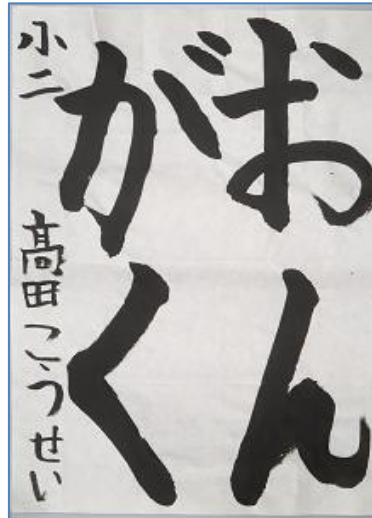 おん
がく
小二 髙田こうせい